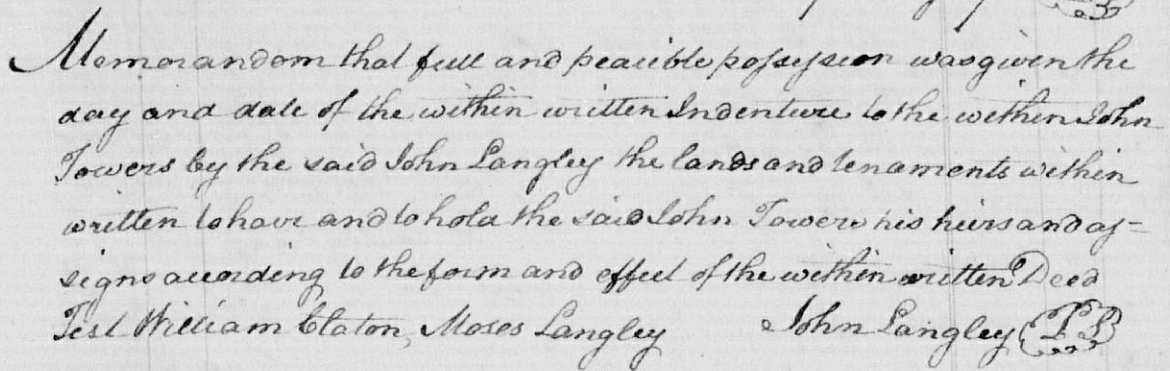 Memorandom that full and peacible possession was given the
day and date of the within written Indenture to the within John
Towers by the said John Langley the lands and tenaments within
written to have and to hold the said John Towers his heirs and as=
signs according to the form and effect of the within written Deed
Test William Claton, Moses Langley John Langley